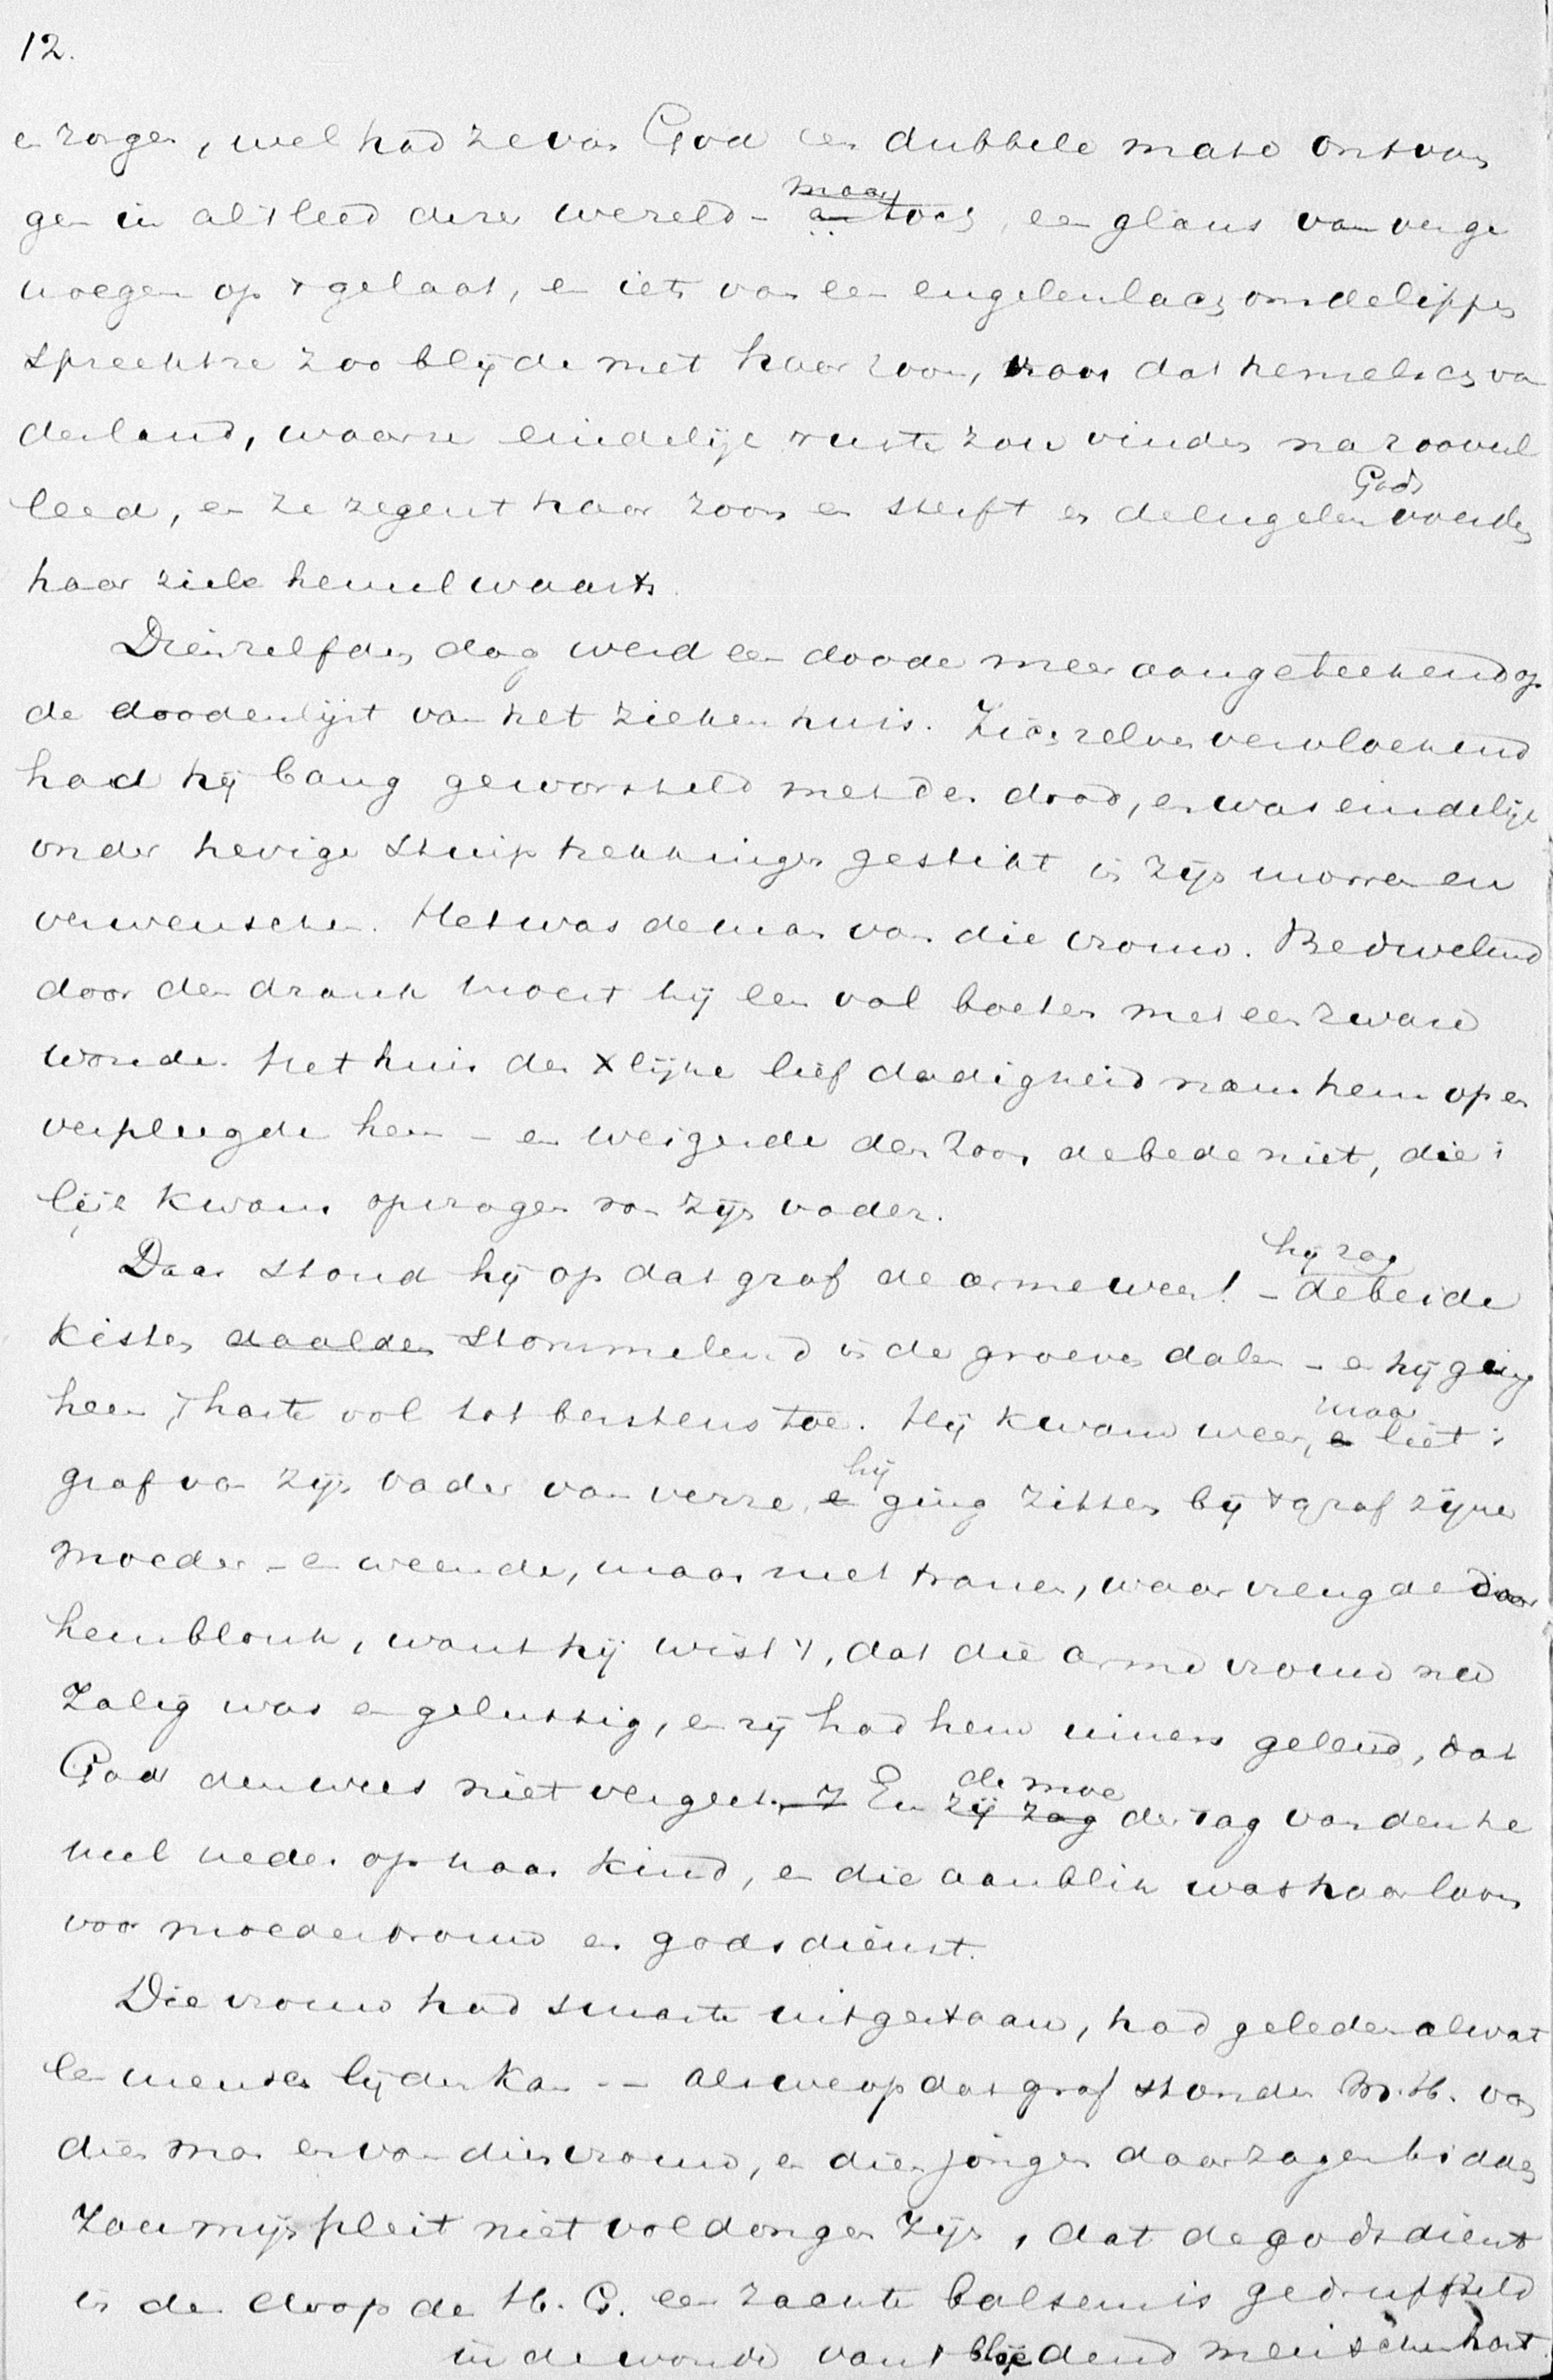 12.
en zorgen, wel had ze van God een dubbele mate ontvan
gen in al 't leed dezer wereld – maar
en toch, een glans van verge
noegen op 't gelaat, en iets van een engelenlach om de lippen
spreekt ze zoo blijde met haar zoon, van dat hemelsch va
derland, waar ze eindelijk ruste zou vinden na zooveel
leed, en ze zegent haar zoon en sterft en Gods
de engelen voerden
haar ziele hemelwaarts.
Dienzelfden dag werd een doode meer aangeteekend op
de doodenlijst van het ziekenhuis. Zich zelven vervloekend
had hij bang geworsteld met den dood, en was eindelijk
onder hevige stuiptrekkingen gestikt in zijn morren en
verwenschen. Het was de man van die vrouw. Bedwelmd
door den drank moest hij een val boeten met een zware
wonde. Het huis der Xlijke liefdadigheid nam hem op en
verpleegde hem – en weigerde den zoon de bede niet, die 't
lijk kwam opvragen van zijn vader.
Daar stond hij op dat graf de arme wees! – hij zag
de beide
kisten daalden stommelend in de groeve dalen – en hij ging
heen, 't harte vol tot berstens toe. Hij kwam weer, maar
en liet 't
graf van zijn vader van verre, hij
en ging zitten bij 't graf zijner
moeder – en weende, maar met tranen, waar vreugde door
henblonk, want hij wist 't, dat die arme vrouw nu
zalig was en gelukkig, en zij had hem immers geleerd, dat
God den wees niet vergeet. Z En de moe
zij zag der zag van den he
mel neder op haar kind, en die aanblik was haar loon
voor moedertrouw en godsdienst.
Die vrouw had smarte uitgestaan, had geleden al wat
een mensch lijden kan – – als we op dat graf stonden M. H. van
dien man en van die vrouw, en dien jongen daar zagen bidden
zou mijn pleit niet voldongen zijn, dat de godsdienst
in den doop de H. G. een zachte balsem is gedruppeld
in de wonde van 't bloedend menschenhart.